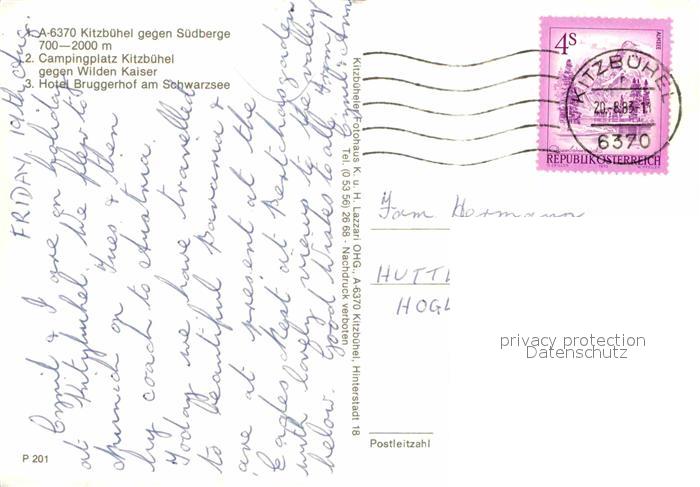 1. A-6370 Kitzbühel gegen Südberge
700—2000 m
2. Campingplatz Kitzbühel
gegen Wilden Kaiser
3. Hotel Bruggerhof am Schwarzsee
FRIDAY, 19th Aug.
Cyril & I are on holiday
at Kitzbuhel. We flew to
Munich on Tues & then
by coach to Austria.
Today we have travelled
to beautiful Bavaria &
are at present at the
Eagles Nest at Berchtesgaden
with lovely views to the valley
below. Good Wishes to all from
Cyril & Ann
P 201
Kitzbüheler Fotohaus K. u. H. Lazzari OHG., A-6370 Kitzbühel, Hinterstadt 18
Tel. (0 53 56) 26 68 - Nachdruck verboten
4S
ALMSEE
REPUBLIK ÖSTERREICH
KITZBÜHEL
20.-8.83-11
6370
Fam Hermann
HUTTL
HOGL
privacy protection
Datenschutz
Postleitzahl